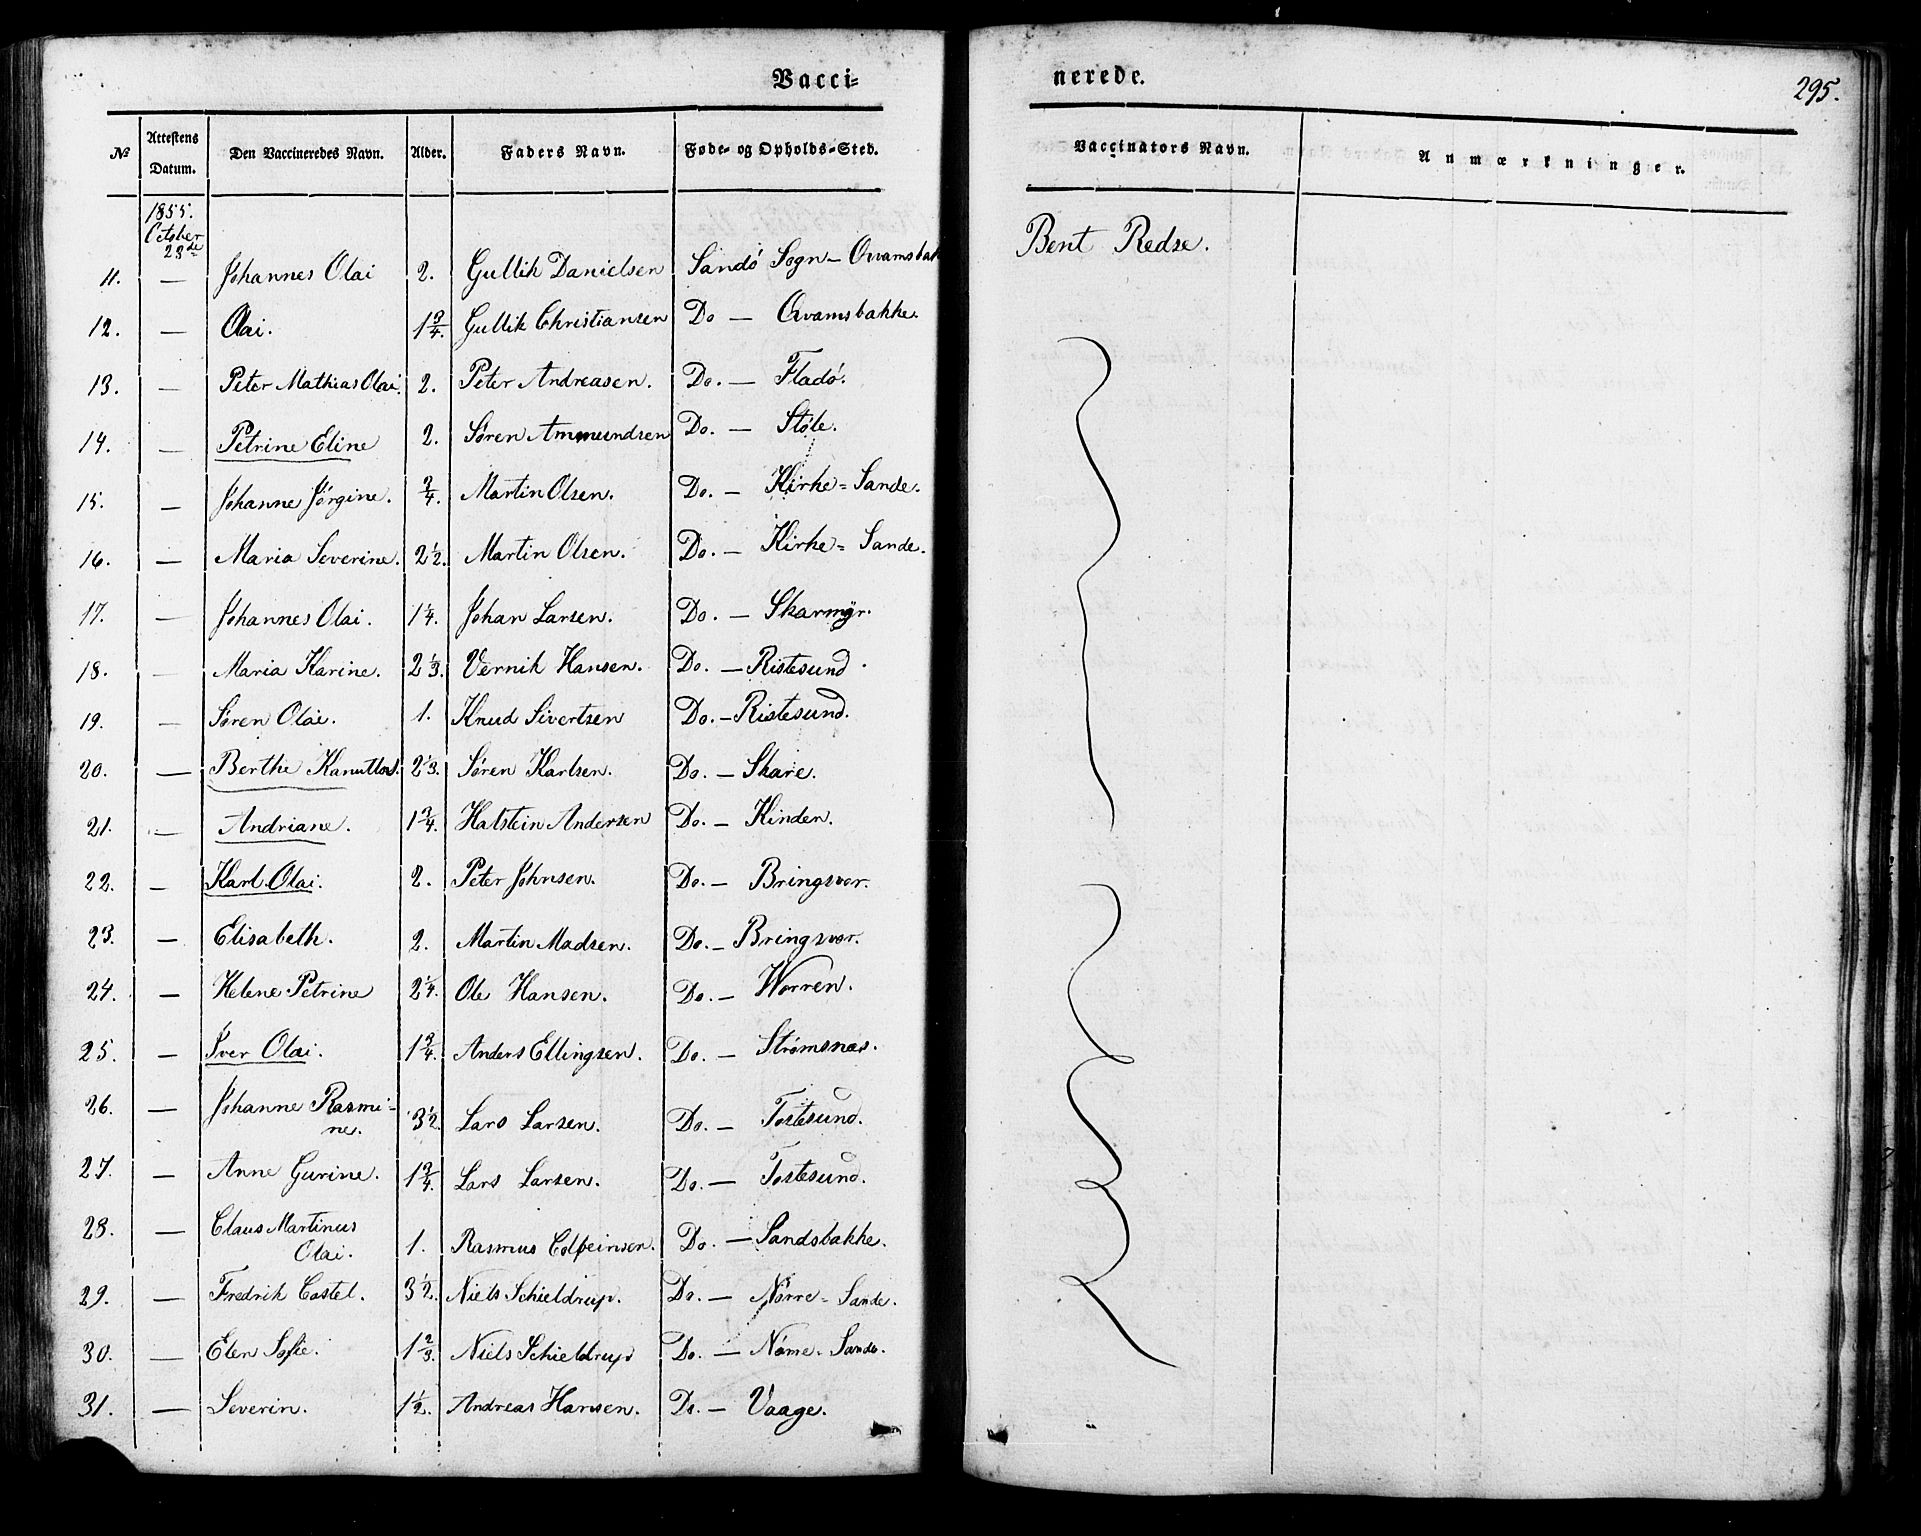 Vacci= nerede. 295.
№ Attestens Datum. Den Vaccineredes Navn. Alder. Faders Navn. Føde- og Opholds-Sted. Vaccinators Navn. Anmærkninger.
1855.
October
28de
11. — Johannes Olai 2. Gullik Danielsen Sandö Sogn — Qvamsbak Bent Redse.
12. — Olai. 1 3/4. Gullik Christiansen Do — Qvamsbakke.
13. — Peter Mathias Olai. 2. Peter Andreasen. Do. — Fladö.
14. — Petrine Eline 2. Sören Ammundsen Do. — Støle.
15. — Johanne Jörgine. 3/4. Martin Olsen. Do. — Kirke=Sande.
16. — Maria Severine. 2 1/2. Martin Olsen. Do. — Kirke=Sande.
17. — Johannes Olai. 1 1/4. Johan Larsen. Do. — Skarmyr.
18. — Maria Karine. 2 1/3. Vernik Hansen. Do. — Ristesund.
19. — Søren Olai. 1. Knud Sivertsen Do. — Ristesund.
20. — Berthe 2 1/3. Søren Karlsen. Do. — Skare.
21. — Andriane. 1 3/4. Halstein Andersen Do. — Kinden.
22. — Karl Olai. 2. Peter Johnsen. Do. — Bringsvor.
23. — Elisabeth. 2. Martin Madsen. Do. — Bringsvor.
24. — Helene Petrine 2 1/4. Ole Hansen. Do. — Worren.
25. — Iver Olai. 1 3/4. Anders Ellingsen. Do. — Strømsnæs.
26. — Johanne Rasmi-
ne. 3 1/2. Lars Larsen. Do. — Tostesund.
27. — Anne Gurine. 1 3/4. Lars Larsen. Do. — Tostesund.
28. — Claus Martinus
Olai. 1. Rasmus Do. — Sandsbakke.
29. — Fredrik Castel. 3 1/2. Niels Schieldrup. Do. — Nörre=Sande.
30. — Elen Sofie. 1 2/3. Niels Schieldrup Do. — Sande.
31. — Severin. 1 1/2. Andreas Hansen. Do. — Vaage.